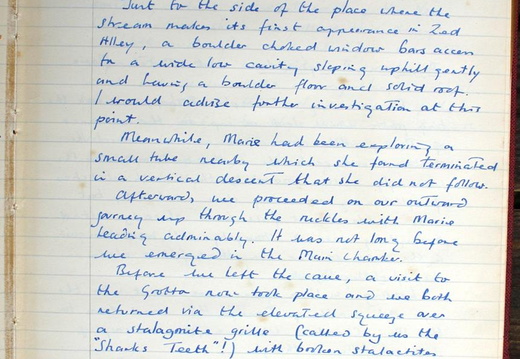 Just to the side of the place where the
stream makes its first appearance in Zed
Alley, a boulder choked window bars access
to a wide low cavity sloping uphill gently
and having a boulder floor and solid roof.
I would advise further investigation at this
point.
Meanwhile, Marie had been exploring a
small tube nearby which she found terminated
in a vertical descent that she did not follow.
Afterwards, we proceeded on our outward
journey up through the ruckles with Marie
leading admirably. It was not long before
we emerged in the Main Chamber.
Before we left the cave, a visit to
the Grotto now took place and we both
returned via the elevated squeeze over
a stalagmite grille (called by us the
"Sharks Teeth"!) with broken stalactites